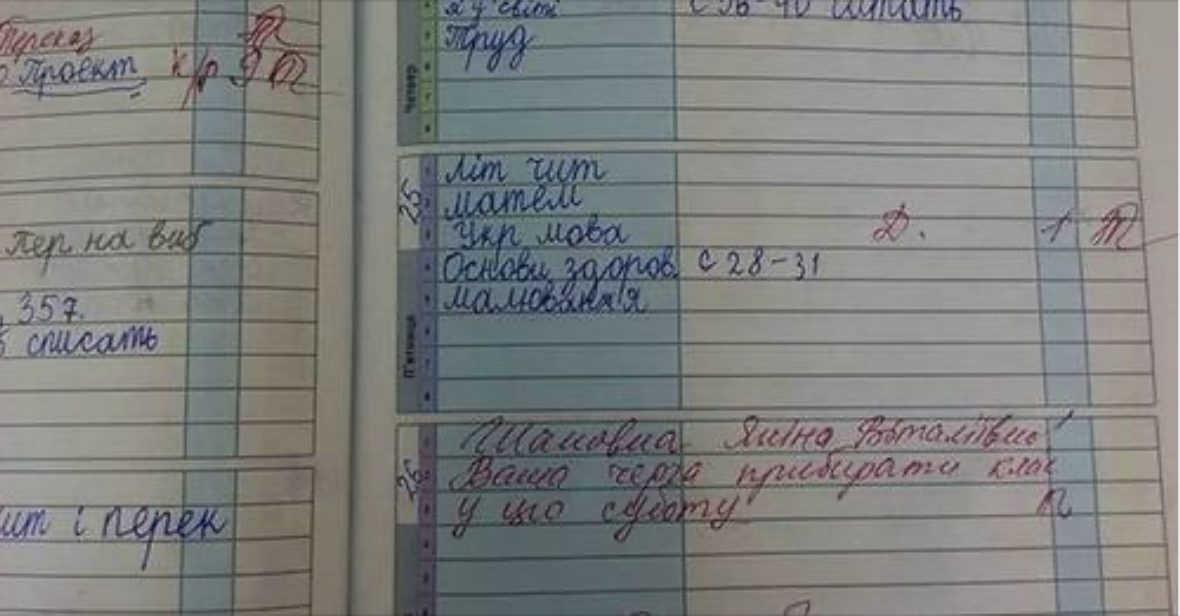 Переказ
Проект к/р 9
Пер на виб
357.
списать
і перек
я у світі с 36-40 читать
Труд
Четвер
25
Літ чит
матем
Укр мова Д. 1
Основи здоров с 28-31
малювання
П'ятниця
26
Шановна Яніна Віталіївно!
Ваша черга прибирати клас
у цю суботу